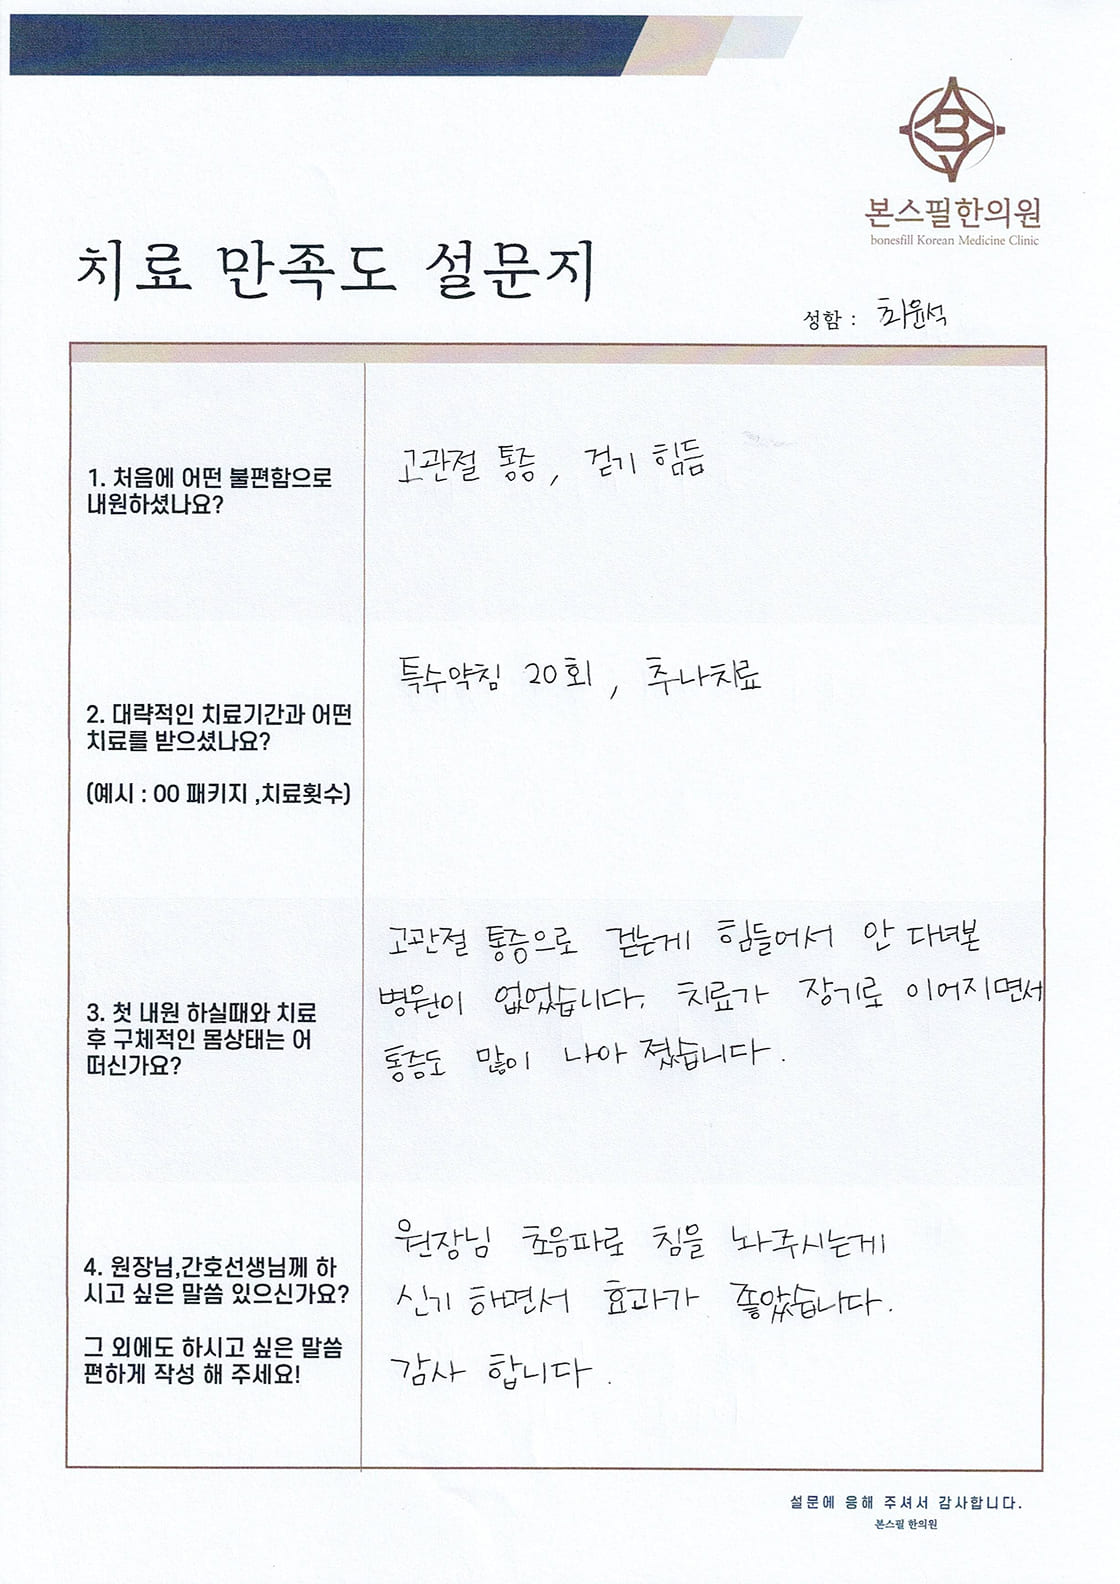 본스필한의원
bonesfill Korean Medicine Clinic
치료 만족도 설문지
성함 : 최윤석
1. 처음에 어떤 불편함으로
내원하셨나요?
고관절 통증, 걷기 힘듬
2. 대략적인 치료기간과 어떤
치료를 받으셨나요?
(예시 : 00 패키지 ,치료횟수)
특수약침 20회 , 추나치료
3. 첫 내원 하실때와 치료
후 구체적인 몸상태는 어
떠신가요?
고관절 통증으로 걷는게 힘들어서 안 다녀본
병원이 없었습니다. 치료가 장기로 이어지면서
통증도 많이 나아 졌습니다.
4. 원장님,간호선생님께 하
시고 싶은 말씀 있으신가요?
그 외에도 하시고 싶은 말씀
편하게 작성 해 주세요!
원장님 초음파로 침을 놔주시는게
신기 하면서 효과가 좋았습니다.
감사 합니다.
설문에 응해 주셔서 감사합니다.
본스필 한의원